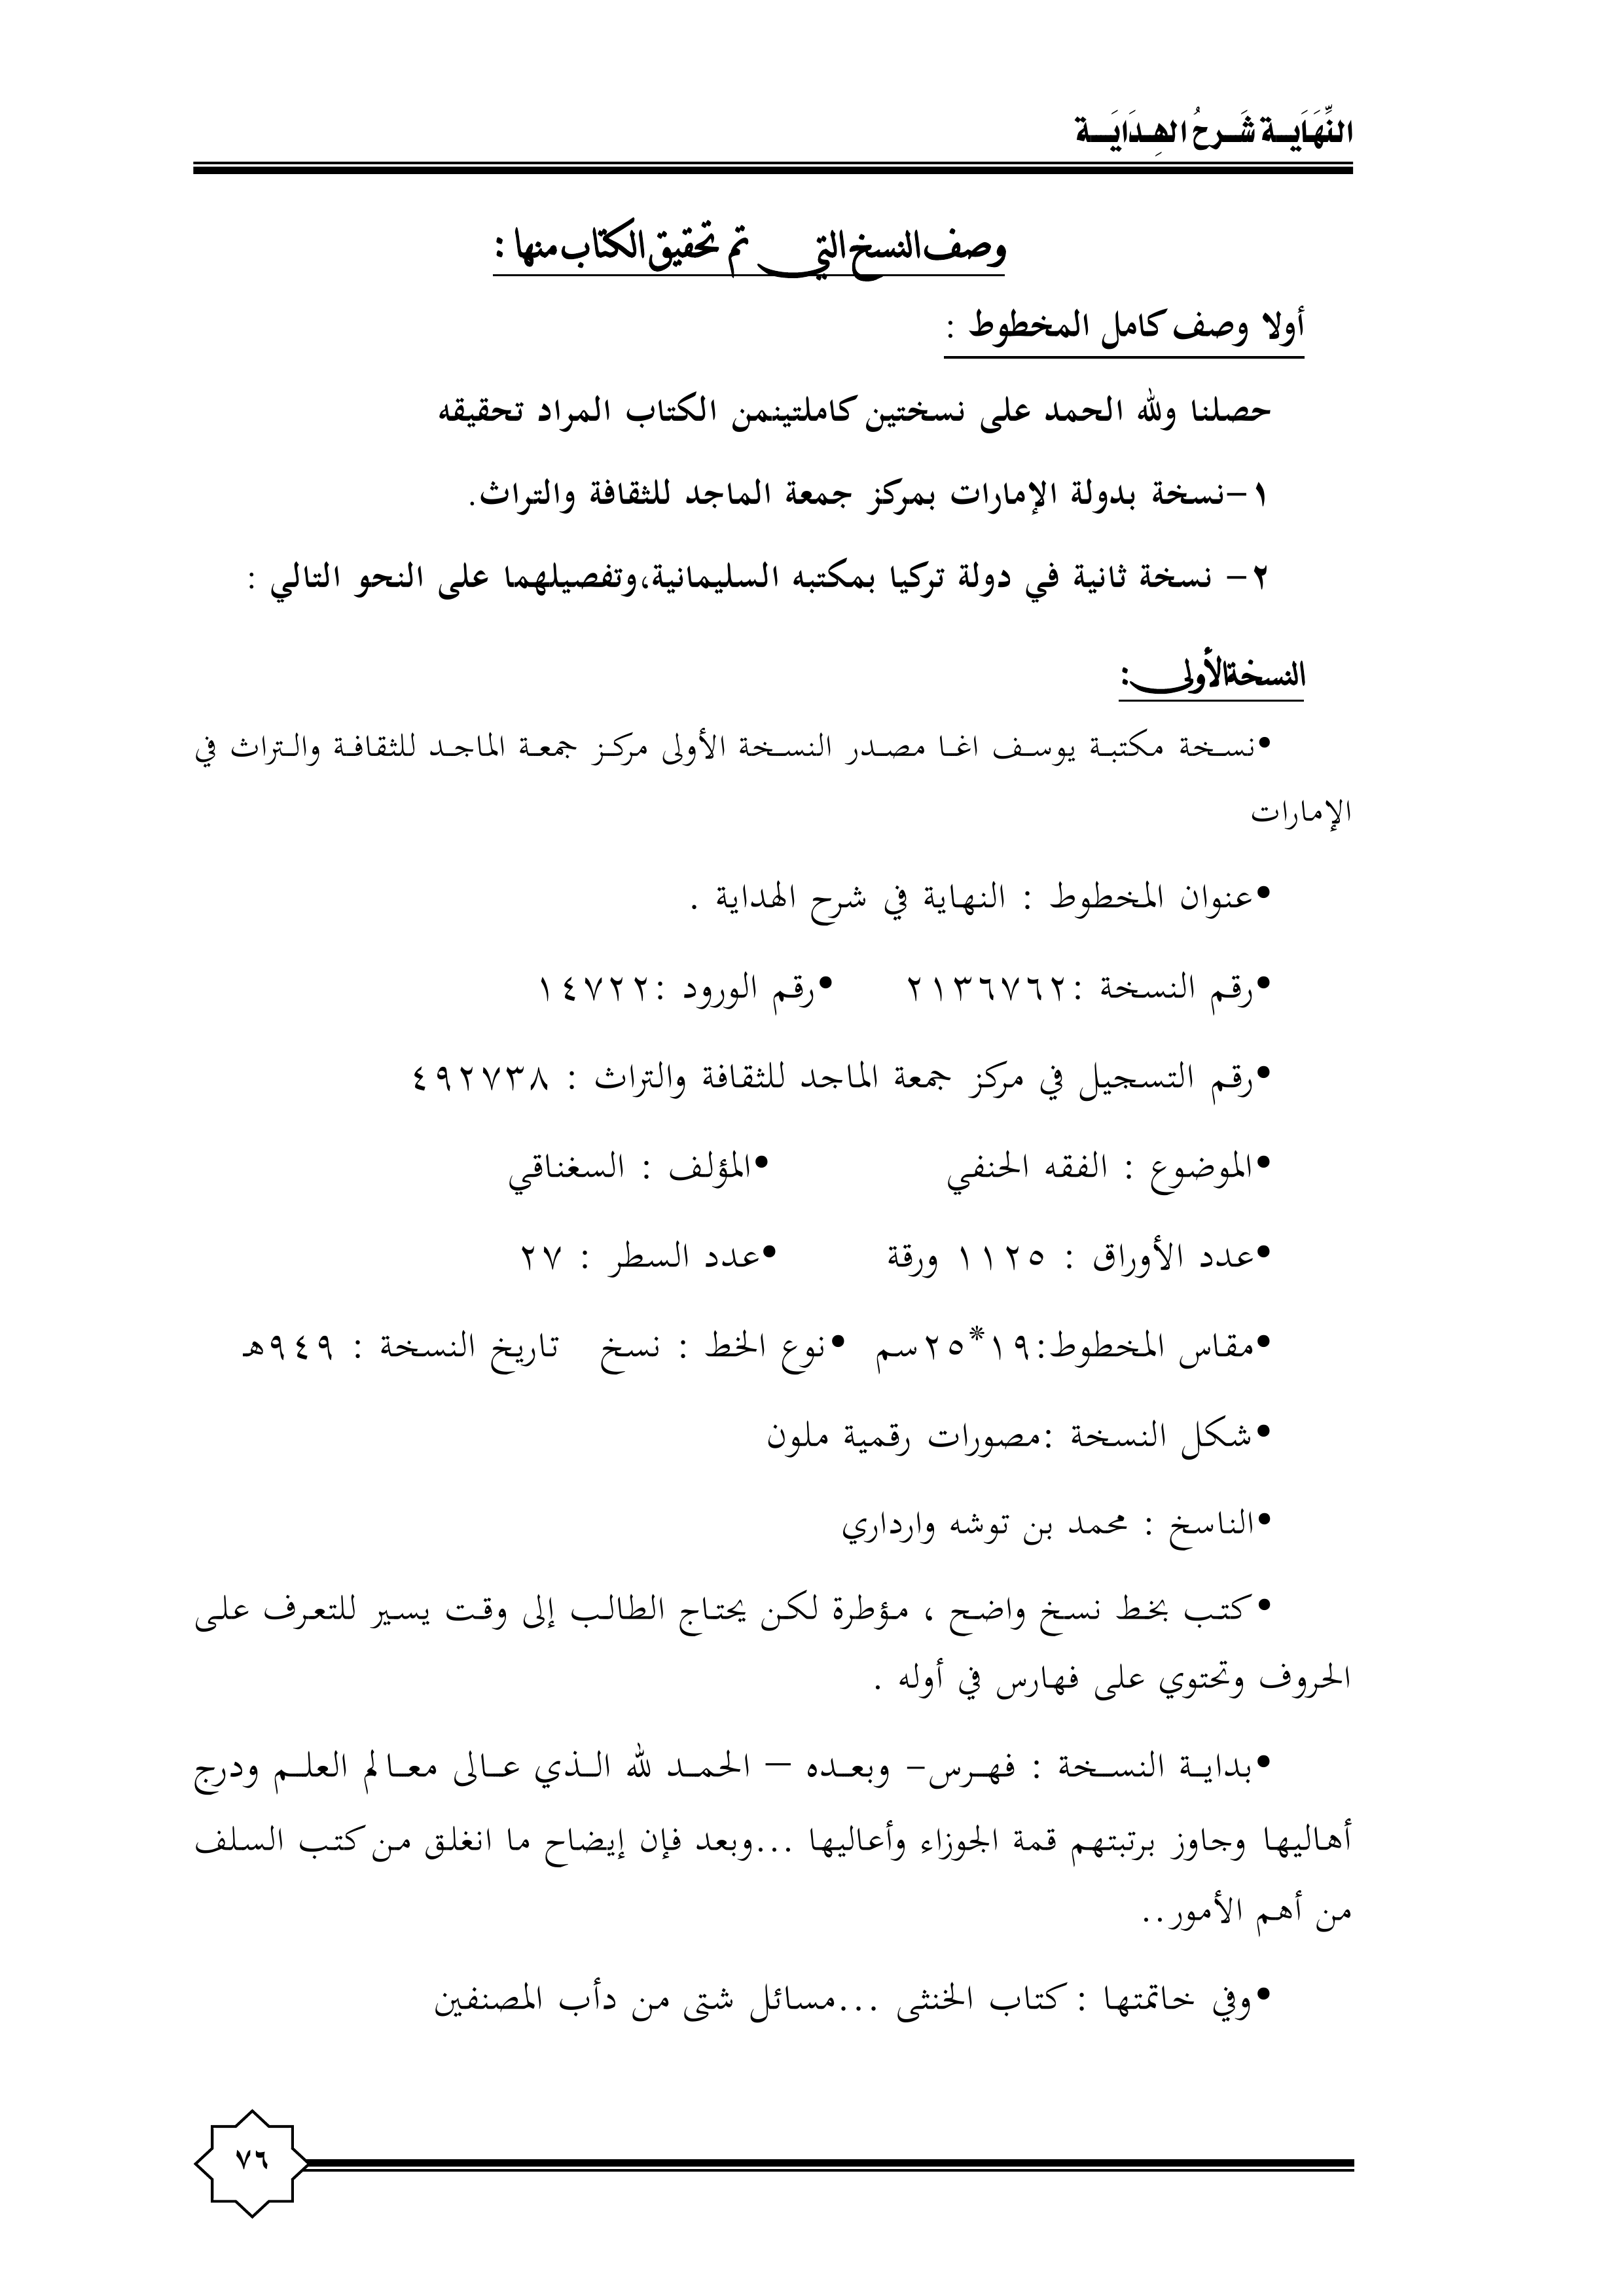 النِّهَايَة شَرحُ الهِدَايَة
وصف النسخ التي تم تحقيق الكتاب منها :
أولا وصف كامل المخطوط :
حصلنا ولله الحمد على نسختين كاملتينمن الكتاب المراد تحقيقه
١-نسخة بدولة الإمارات بمركز جمعة الماجد للثقافة والتراث.
٢- نسخة ثانية في دولة تركيا بمكتبه السليمانية،وتفصيلهما على النحو التالي :
النسخة الأولى:
•نسخة مكتبة يوسف اغا مصدر النسخة الأولى مركز جمعة الماجد للثقافة والتراث في
الإمارات
•عنوان المخطوط : النهاية في شرح الهداية .
•رقم النسخة :٢١٣٦٧٦٢ •رقم الورود :١٤٧٢٢
•رقم التسجيل في مركز جمعة الماجد للثقافة والتراث : ٤٩٢٧٣٨
•الموضوع : الفقه الحنفي •المؤلف : السغناقي
•عدد الأوراق : ١١٢٥ ورقة •عدد السطر : ٢٧
•مقاس المخطوط:١٩*٢٥سم •نوع الخط : نسخ تاريخ النسخة : ٩٤٩هـ
•شكل النسخة :مصورات رقمية ملون
•الناسخ : محمد بن توشه وارداري
•كتب بخط نسخ واضح ، مؤطرة لكن يحتاج الطالب إلى وقت يسير للتعرف على
الحروف وتحتوي على فهارس في أوله .
•بداية النسخة : فهرس- وبعده – الحمد لله الذي عالى معالم العلم ودرج
أهاليها وجاوز برتبتهم قمة الجوزاء وأعاليها ...وبعد فإن إيضاح ما انغلق من كتب السلف
من أهم الأمور..
•وفي خاتمتها : كتاب الخنثى ...مسائل شتى من دأب المصنفين
٧٦